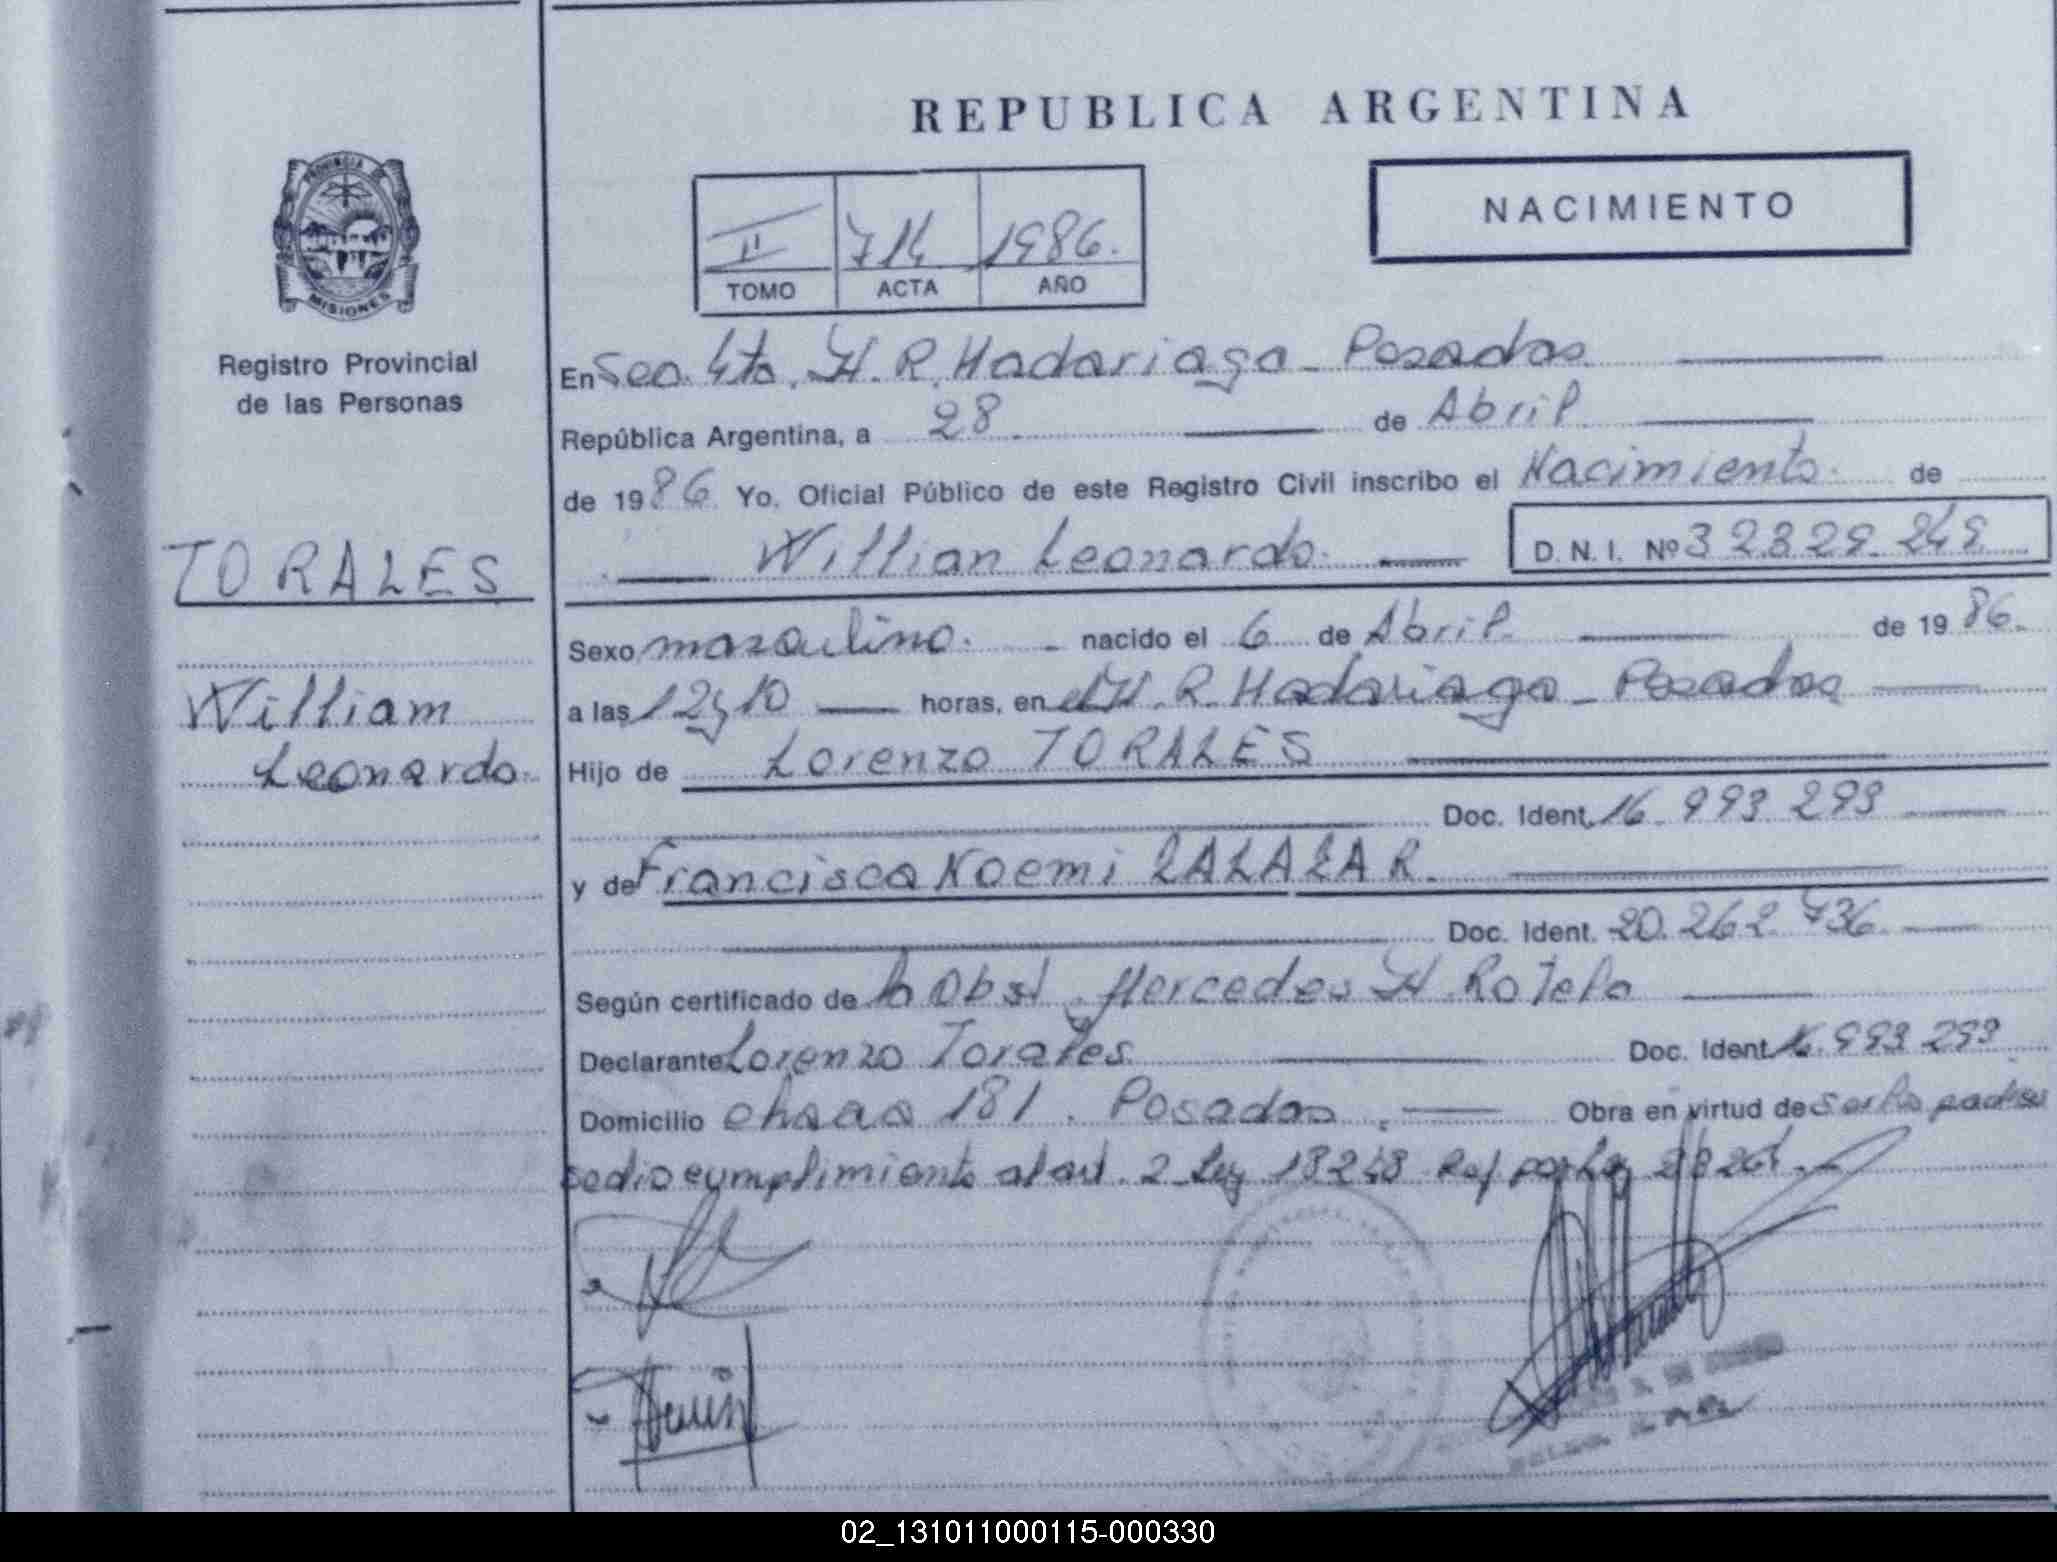 REPUBLICA ARGENTINA
NACIMIENTO
II 714 1986.
TOMO ACTA AÑO
PROVINCIA DE
MISIONES
Registro Provincial
de las Personas
TORALES
William
Leonardo.
En Sec. 4ta. H. R. Madariaga - Posadas
República Argentina, a 28 de Abril
de 1986 Yo, Oficial Público de este Registro Civil inscribo el Nacimiento de
Willian Leonardo. D. N. I. Nº 32.329.249
Sexo masculino. nacido el 6 de Abril de 1986.
a las 12y10 horas, en el H. R. Madariaga - Posadas
Hijo de Lorenzo TORALES
Doc. Ident. 16.993.293
y de Francisca Noemi ZALAZAR.
Doc. Ident. 20.262.736
Según certificado de la Obst. Mercedes H. Rotela
Declarante Lorenzo Torales Doc. Ident. 16.993.293
Domicilio chacra 181. Posadas. Obra en virtud de ser los padres
se dio cumplimiento al art. 2 Ley 18248 Ref por Ley
02_131011000115-000330